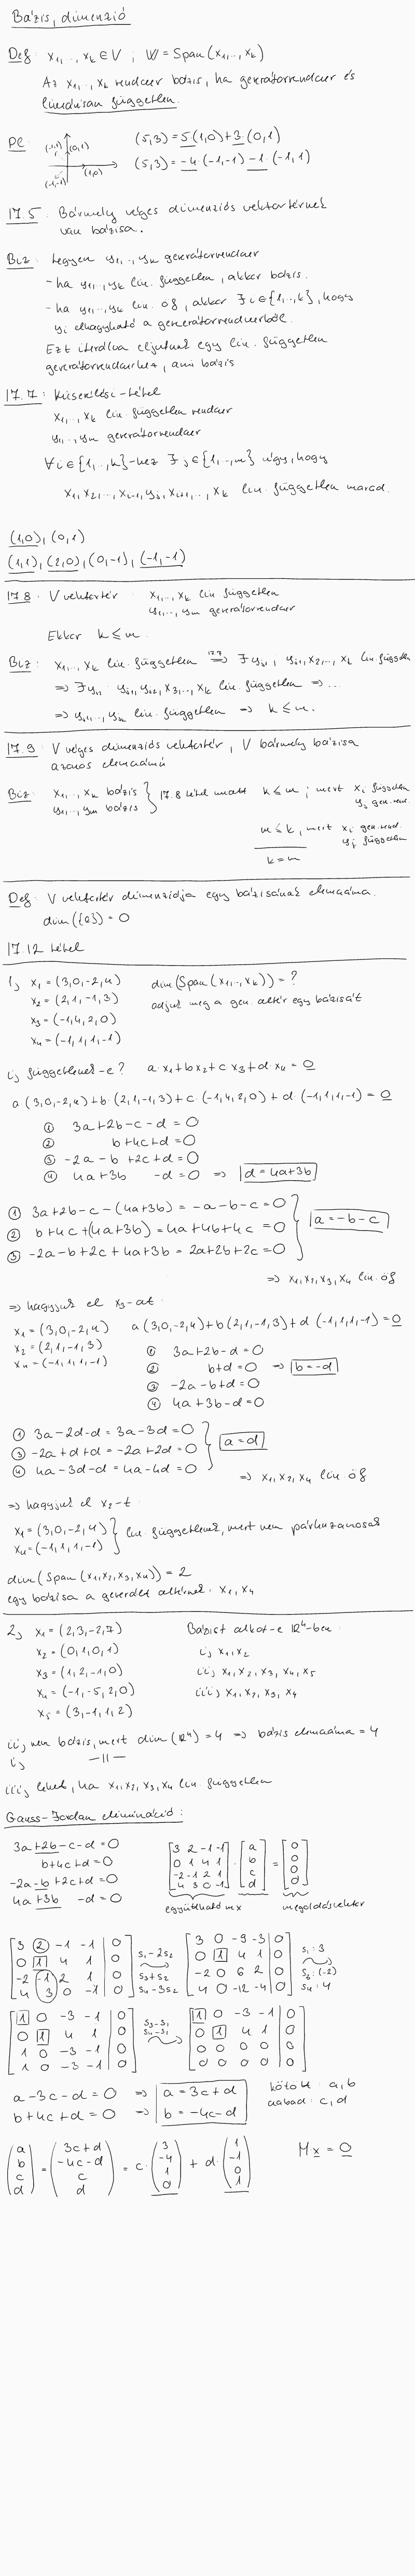 Bázis, dimenzió
Def: x₁,..., xₖ ∈ V ; W = Span(x₁,..., xₖ)
Az x₁,..., xₖ rendszer bázis, ha generátorrendszer és
lineárisan független.
Pl:
(-1,1) (0,1)
(1,0)
(-1,-1)
(5,3) = 5(1,0)+3·(0,1)
(5,3) = -4·(-1,-1) -1·(-1,1)
17.5 Bármely véges dimenziós vektortérnek
van bázisa.
Biz: Legyen y₁,..., yₖ generátorrendszer
- ha y₁,..., yₖ lin. független, akkor bázis.
- ha y₁,..., yₖ lin. öf, akkor ∃ i∈{1,..,k}, hogy
yᵢ elhagyható a generátorrendszerből.
Ezt iterálva eljutunk egy lin. független
generátorrendszerhez, ami bázis
17.7: Kicserélési-tétel
x₁,..., xₖ lin. független rendszer
y₁,..., yₘ generátorrendszer
∀i∈{1,..,k}-hez ∃ j∈{1,..,m} úgy, hogy
x₁, x₂,..., xᵢ₋₁, yⱼ, xᵢ₊₁,..., xₖ lin. független marad.
(1,0), (0,1)
(1,1), (2,0), (0,-1), (-1,-1)
17.8. V vektortér x₁,..., xₖ lin. független
y₁,..., yₘ generátorrendszer
Ekkor k ≤ m.
Biz: x₁,..., xₖ lin. független ⇒ (17.7) ∃ yᵢ₁, yᵢ₁, x₂,..., xₖ lin. független
⇒ ∃ yᵢ₂: yᵢ₁, yᵢ₂, x₃,..., xₖ lin. független ⇒ ...
⇒ yᵢ₁,..., yᵢₖ lin. független ⇒ k ≤ m.
17.9 V véges dimenziós vektortér, V bármely bázisa
azonos elemszámú
Biz: x₁,..., xₖ bázis } 17.8 tétel miatt k ≤ m ; mert xᵢ független
y₁,..., yₘ bázis yⱼ gen. rend.
m ≤ k, mert xᵢ gen. rend.
yⱼ független
k = m
Def: V vektortér dimenziója egy bázisának elemszáma.
dim({0}) = 0
17.12 tétel
1, x₁ = (3,0,-2,4) dim(Span(x₁,..., xₖ)) = ?
x₂ = (2,1,-1,3) adjuk meg a gen. altér egy bázisát
x₃ = (-1,4,2,0)
x₄ = (-1,1,1,-1)
i, függetlenek-e? a·x₁+bx₂+cx₃+d·x₄ = 0
a(3,0,-2,4)+b·(2,1,-1,3)+c·(-1,4,2,0)+d·(-1,1,1,-1) = 0
① 3a+2b-c-d = 0
② b+4c+d = 0
③ -2a-b+2c+d = 0
④ 4a+3b -d = 0 ⇒ d = 4a+3b
① 3a+2b-c-(4a+3b) = -a-b-c = 0
② b+4c+(4a+3b) = 4a+4b+4c = 0 } a = -b-c
③ -2a-b+2c+4a+3b = 2a+2b+2c = 0
⇒ x₁, x₂, x₃, x₄ lin. öf
⇒ hagyjuk el x₃-at.
x₁ = (3,0,-2,4) a(3,0,-2,4)+b(2,1,-1,3)+d(-1,1,1,-1) = 0
x₂ = (2,1,-1,3) ① 3a+2b-d = 0
x₄ = (-1,1,1,-1) ② b+d = 0 ⇒ b = -d
③ -2a-b+d = 0
④ 4a+3b-d = 0
① 3a-2d-d = 3a-3d = 0
③ -2a+d+d = -2a+2d = 0 } a = d
④ 4a-3d-d = 4a-4d = 0
⇒ x₁, x₂, x₄ lin. öf
⇒ hagyjuk el x₂-t.
x₁ = (3,0,-2,4) } lin. függetlenek, mert nem párhuzamosak
x₄ = (-1,1,1,-1)
dim(Span(x₁,x₂,x₃,x₄)) = 2
egy bázisa a generált altérnek: x₁, x₄
2, x₁ = (2,3,-2,7) Bázist alkot-e ℝ⁴-ben:
x₂ = (0,1,0,1) i, x₁, x₂
x₃ = (1,2,-1,0) ii, x₁, x₂, x₃, x₄, x₅
x₄ = (-1,-5,2,0) iii, x₁, x₂, x₃, x₄
x₅ = (3,-1,1,2)
ii, nem bázis, mert dim(ℝ⁴) = 4 ⇒ bázis elemszáma = 4
i, —||—
iii, lehet, ha x₁, x₂, x₃, x₄ lin. független
Gauss-Jordan elimináció:
3a+2b-c-d = 0
b+4c+d = 0
-2a-b+2c+d = 0
4a+3b -d = 0
[3 2 -1 -1] [a] [0]
[0 1 4 1] · [b] = [0]
[-2 -1 2 1] [c] [0]
[4 3 0 -1] [d] [0]
együttható mx megoldásvektor
[3 2 -1 -1 | 0] S₁-2S₂ [3 0 -9 -3 | 0] S₁:3
[0 1 4 1 | 0] [0 1 4 1 | 0]
[-2 -1 2 1 | 0] S₃+S₂ [-2 0 6 2 | 0] S₃:(-2)
[4 3 0 -1 | 0] S₄-3S₂ [4 0 -12 -4 | 0] S₄:4
[1 0 -3 -1 | 0] S₃-S₁ [1 0 -3 -1 | 0]
[0 1 4 1 | 0] S₄-S₁ [0 1 4 1 | 0]
[1 0 -3 -1 | 0] [0 0 0 0 | 0]
[1 0 -3 -1 | 0] [0 0 0 0 | 0]
a-3c-d = 0 ⇒ a = 3c+d kötött: a,b
b+4c+d = 0 ⇒ b = -4c-d szabad: c,d
(a) (3c+d) (3) (1) Mx = 0
(b) = (-4c-d) = c·(-4) + d·(-1)
(c) (c) (1) (0)
(d) (d) (0) (1)